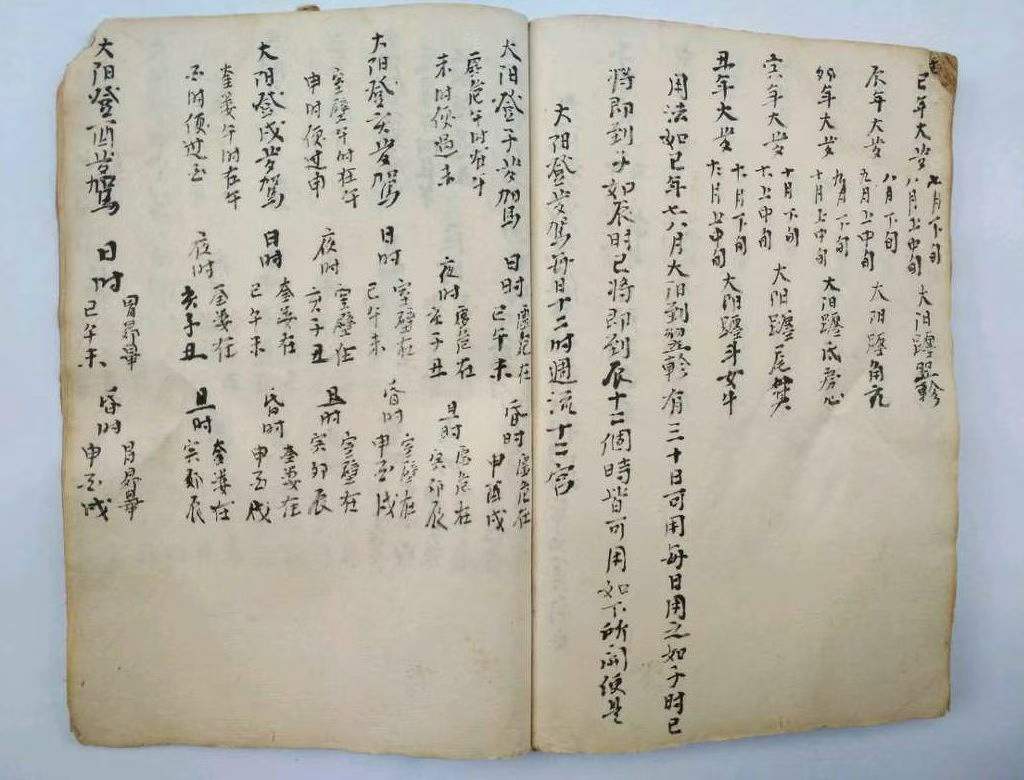 巳年大岁 七月下旬 八月上中旬 太阳躔翌軫
辰年大岁 八月下旬 九月上中旬 大阳躔角亢
卯年大岁 九月下旬 十月上中旬 大阳躔氐房心
寅年大岁 十月下旬 十一上中旬 大阳躔尾箕
丑年大岁 十一月下旬 十二月上中旬 大阳躔斗女牛
用法如巳年七八月大阳到翌軫有三十日可用每日用之如子时巳
將即到子如辰时巳將即到辰十二個時皆可用如下所開便是
大阳登岁駕每日十二时週流十二宫
大阳登子岁駕 日时 虚危在巳午未 昏时 虚危在申酉戌
虚危午时在午未时便過未 夜时 虚危在亥子丑 旦时 虚危在寅卯辰
大阳登亥岁駕 日时 室壁在巳午未 昏时 室壁在申酉戌
室壁午时在午申时便过申 夜时 室壁在亥子丑 旦时 室壁在寅卯辰
大阳登戌岁駕 日时 奎娄在巳午未 昏时 奎娄在申酉戌
奎娄午时在午酉时便过酉 夜时 奎娄在亥子丑 旦时 奎娄在寅卯辰
大阳登酉岁駕 日时 胃昴畢巳午未 昏时 胃昴畢申酉戌